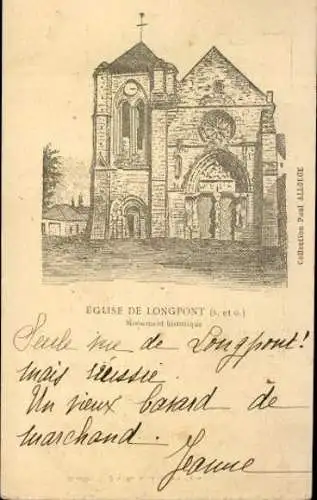 ÉGLISE DE LONGPONT (S. et O.)
Monument historique
Collection Paul ALLORGE
Seule vue de Longpont!
mais réussie
Un vieux bavard de
marchand.
Jeanne